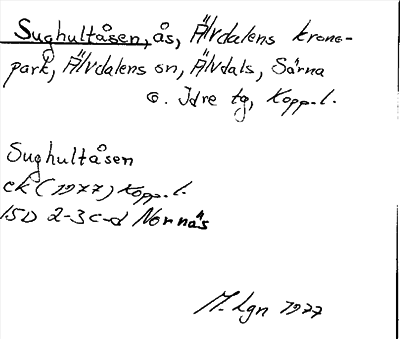 Sughultåsen, ås, Älvdalens krono-
park, Älvdalens sn, Älvdals, Särna
o. Idre tg, Kopp.l.
Sughultåsen
ek (1977) Kopp.l.
15D 2-3c-d Nornäs
M. Lgn 1977